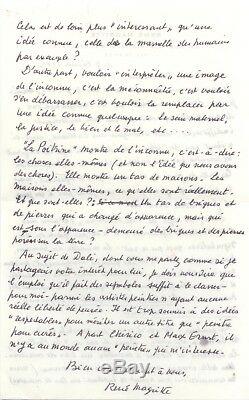 Cela est de loin plus "intéressant" qu'une
idée connue, celle de la marselle des humains
par exemple ?
D'autre part, vouloir "interpréter" une image
de l'inconnu, c'est la méconnaître, c'est vouloir
s'en débarrasser, c'est vouloir la remplacer par
une idée connue quelconque : le sein maternel,
la justice, le bien et le mal, etc ....
"La Poitrine" montre de l'inconnu, c'est-à-dire :
les choses elles-mêmes, (et non l'idée que nous avons
des choses). Elle montre un tas de maisons. Les
maisons elles-mêmes, ce qu'elles sont réellement.
Et que sont-elles ? Un tas de briques et
de pierres qui a changé d'apparence, mais qui
est sous l'apparence - demeuré des briques et des pierres
posées sur la terre ?
Au sujet de Dali, dont vous me parlez comme si je
partageais votre intérêt pour lui, je dois vous dire que
l'emploi qu'il fait des symboles suffit à le classer -
pour moi - parmi les artistes peintres n'ayant aucune
réelle liberté de pensée. Il est trop soumis à des idées
"respectables" pour mériter un autre titre que "peintre
pour curés". A part Chirico et Max Ernst, il
n'y a au monde aucun "peintre" qui m'intéresse.
Bien à vous,
René Magritte